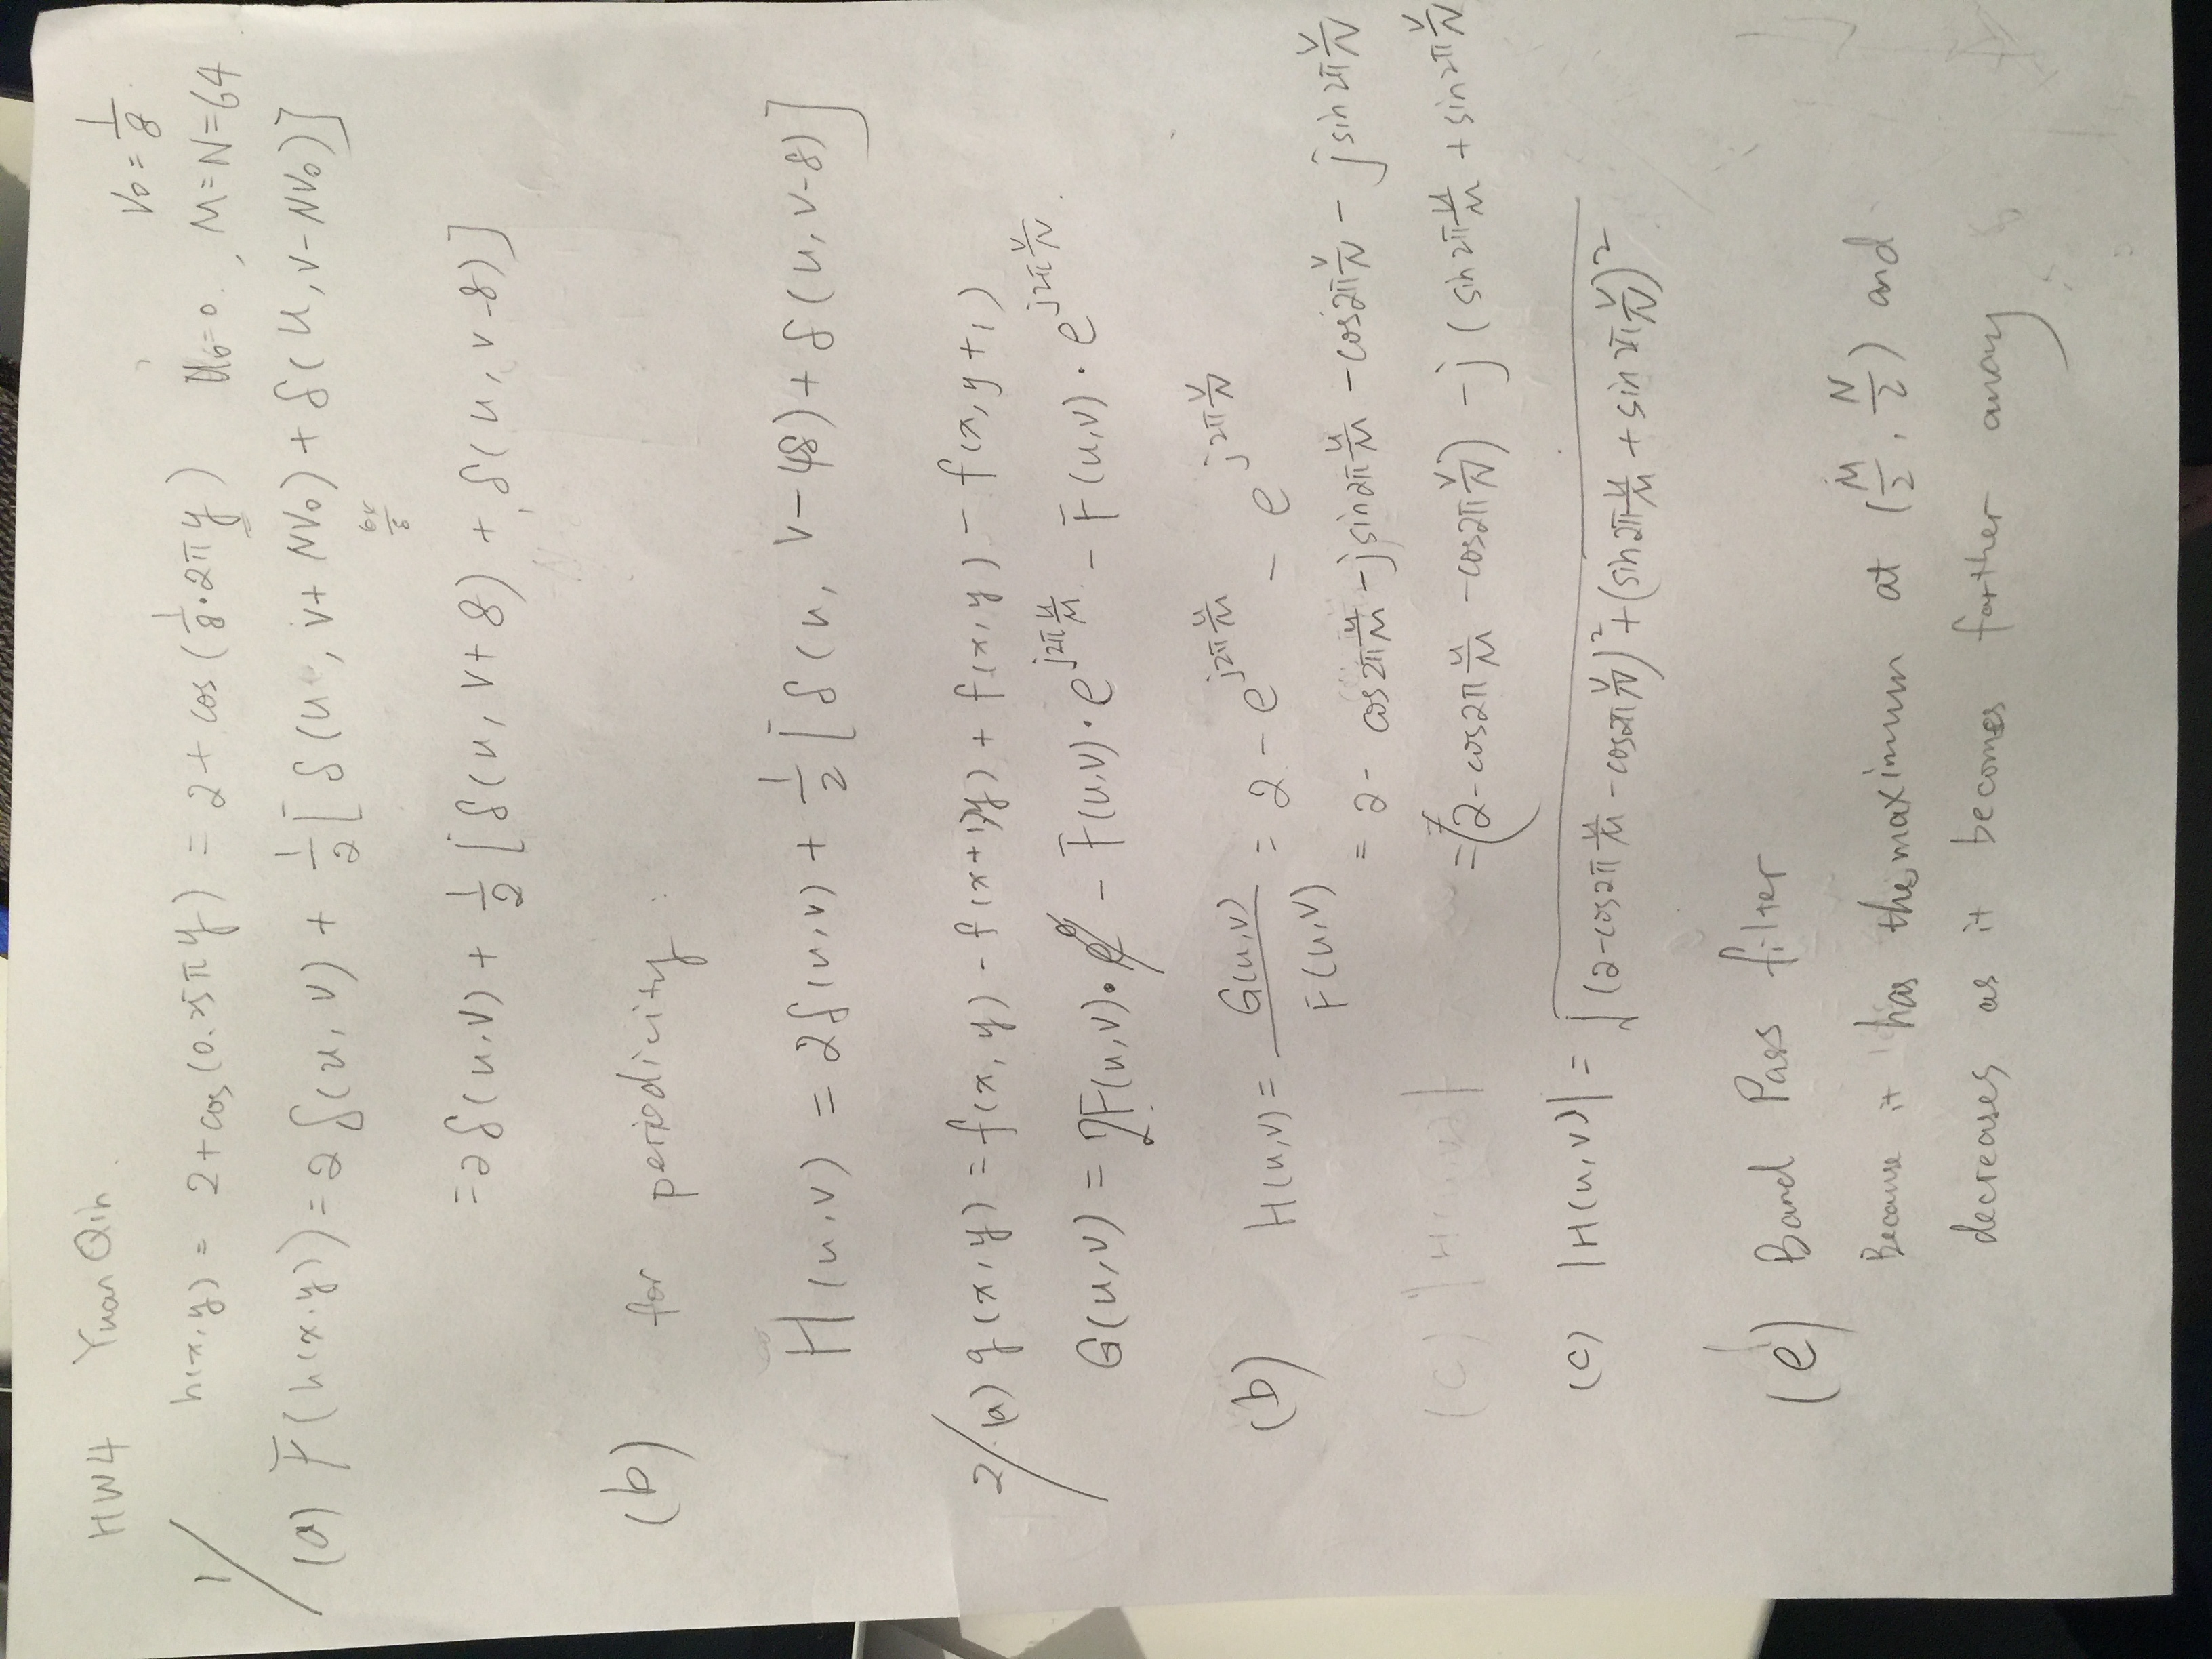 HW4 Yuan Qin.
V₀ = 1/8
1/ h(x,y) = 2+cos(0.25π y) = 2+ cos(1/8·2π y) U₀=0, M=N=64
(a) F(h(x,y)) = 2δ(u, v) + 1/2[δ(u, v+ NV₀) + δ(u, v-NV₀)]
64/8
=2δ(u,v) + 1/2[δ(u, v+8) + δ(u, v-8)]
(b) for periodicity:
H(u,v) = 2δ(u,v) + 1/2[δ(u, v-48) + δ(u, v-8)]
2/ (a) g(x,y) = f(x,y) - f(x+1,y) + f(x,y) - f(x,y+1)
G(u,v) = 2F(u,v)·e⁰ - F(u,v)·e^(j2π u/M) - F(u,v)·e^(j2π v/N).
(b) H(u,v) = G(u,v)/F(u,v) = 2 - e^(j2π u/M) - e^(j2π v/N)
= 2 - cos2π u/M - j sin2π u/M - cos2π v/N - j sin2π v/N
(c) |H(u,v)|
= (2-cos2π u/M -cos2π v/N) -j (sin2π u/M + sin2π v/N
(c) |H(u,v)| = √((2-cos2π u/M -cos2π v/N)²+(sin2π u/M + sin2π v/N)²)
(e) Band Pass filter
Because it has the maximum at (M/2, N/2) and
decreases as it becomes farther away